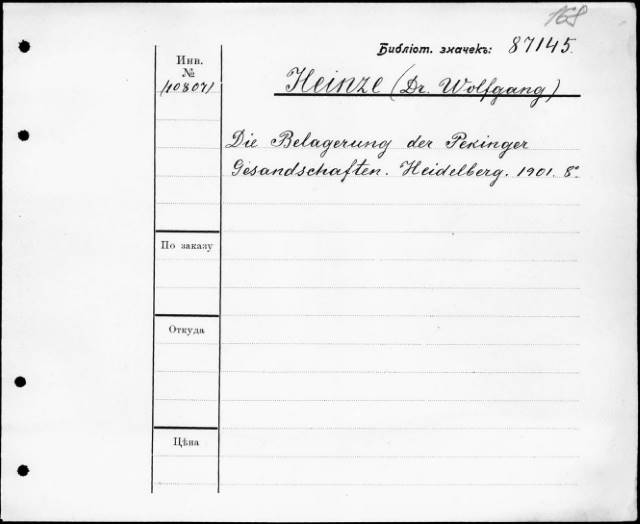 168
Библіот. значекъ: 87145.
Инв.
№
Heinze (Dr. Wolfgang)
Die Belagerung der Pekinger
Gesandschaften. Heidelberg. 1901. 8º
По заказу
Откуда
Цѣна